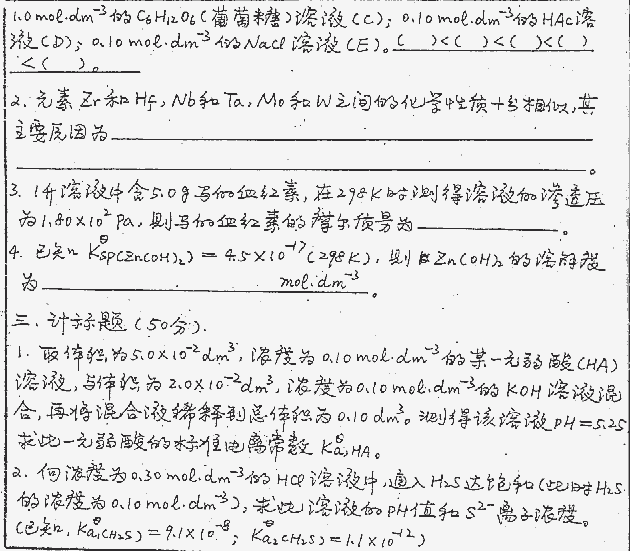 1.0 mol·dm⁻³的 C₆H₁₂O₆(葡萄糖)溶液(C); 0.10 mol·dm⁻³的HAc溶
液(D); 0.10 mol·dm⁻³的NaCl溶液(E)。( )<( )<( )<( )
<( )。
2. 元素 Zr和Hf, Nb和Ta, Mo和W之间的化学性质十分相似,其
主要原因为
。
3. 1升溶液中含5.0g马的血红素,在298K时测得溶液的渗透压
为1.80×10² Pa,则马的血红素的摩尔质量为 。
4. 已知 K^θ_sp(Zn(OH)₂) = 4.5×10⁻¹⁷(298K), 则 Zn(OH)₂的溶解度
为 mol·dm⁻³。
三、计标题(50分).
1. 取体积为5.0×10⁻²dm³,浓度为0.10mol·dm⁻³的某一元弱酸(HA)
溶液,与体积为2.0×10⁻²dm³,浓度为0.10mol·dm⁻³的KOH溶液混
合,再将混合液稀释到总体积为0.10dm³。测得该溶液pH=5.25
求此一元弱酸的标准电离常数 K^θ_a,HA。
2. 向浓度为0.30mol·dm⁻³的HCl溶液中,通入H₂S达饱和(此时H₂S
的浓度为0.10mol·dm⁻³),求此溶液的pH值和S²⁻离子浓度。
(已知, K^θ_a₁(H₂S) = 9.1×10⁻⁸; K^θ_a₂(H₂S) = 1.1×10⁻¹²)